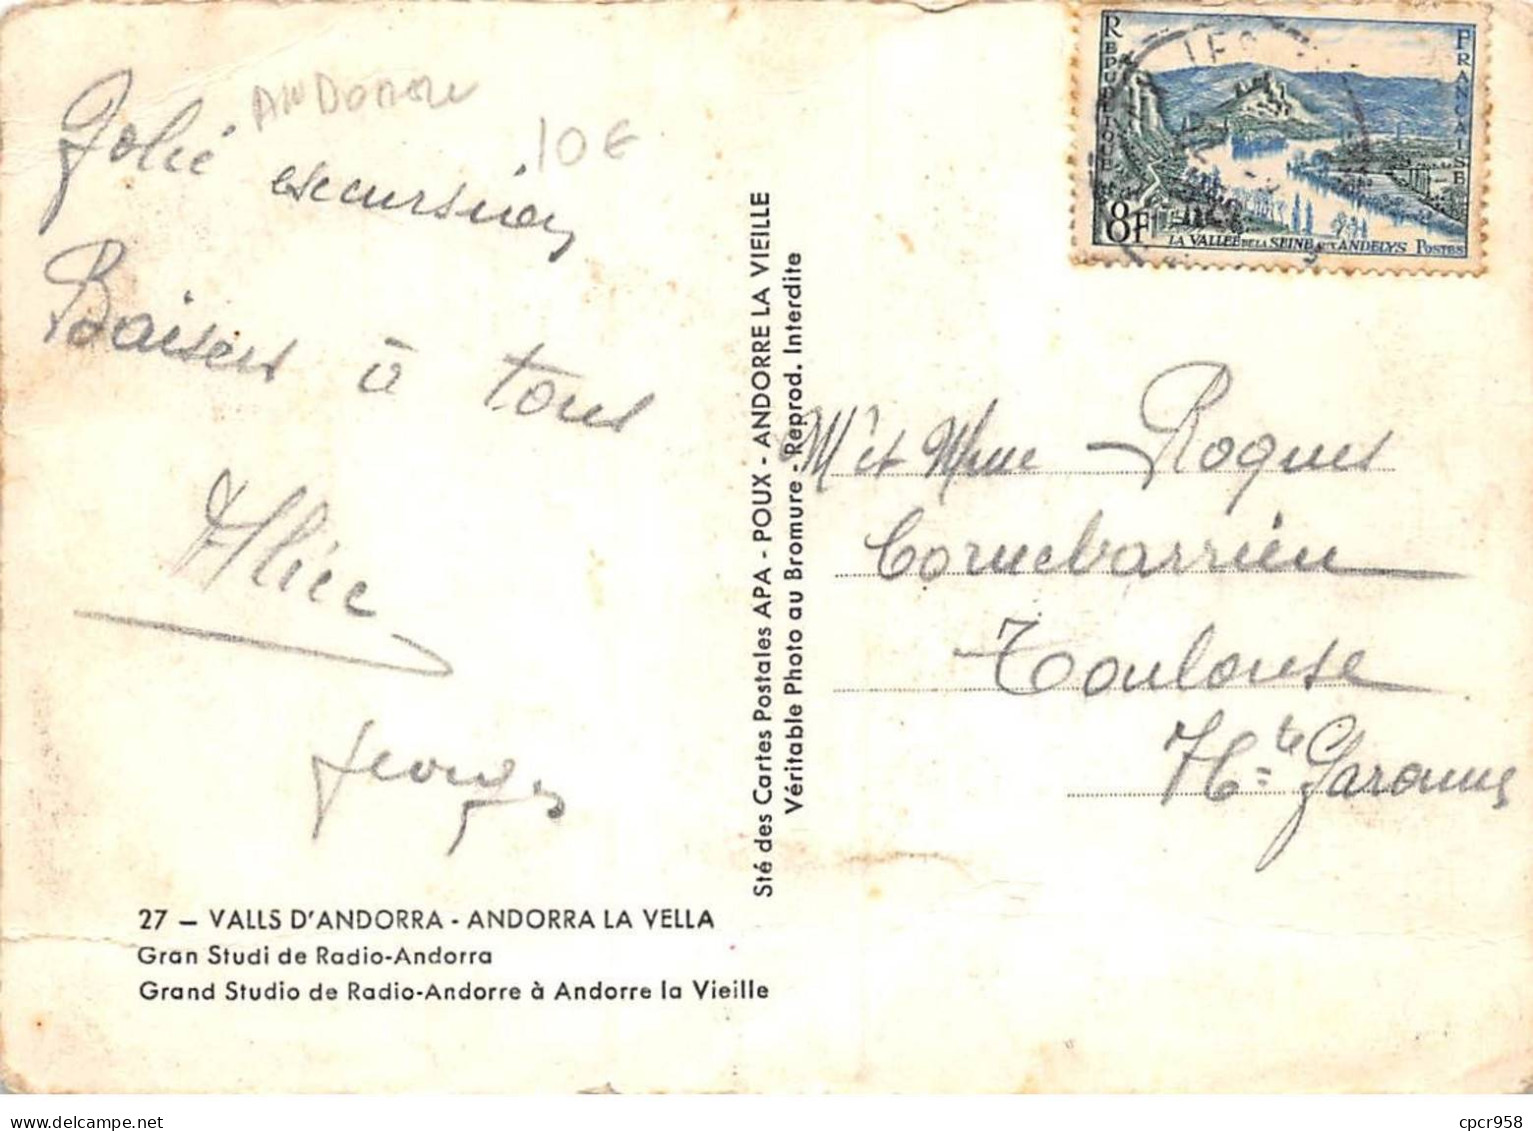 ANDORRE
10€
Jolie excursion
Baisers à tous
Alice
Georges
27 — VALLS D'ANDORRA - ANDORRA LA VELLA
Gran Studi de Radio-Andorra
Grand Studio de Radio-Andorre à Andorre la Vieille
Sté des Cartes Postales APA - POUX - ANDORRE LA VIEILLE
Véritable Photo au Bromure - Reprod. Interdite
REPUBLIQUE
FRANÇAISE
8F
LA VALLEE DE LA SEINE AUX ANDELYS POSTES
Mr et Mme Roques
Cornebarrieu
Toulouse
Hte Garonne
cpcr958